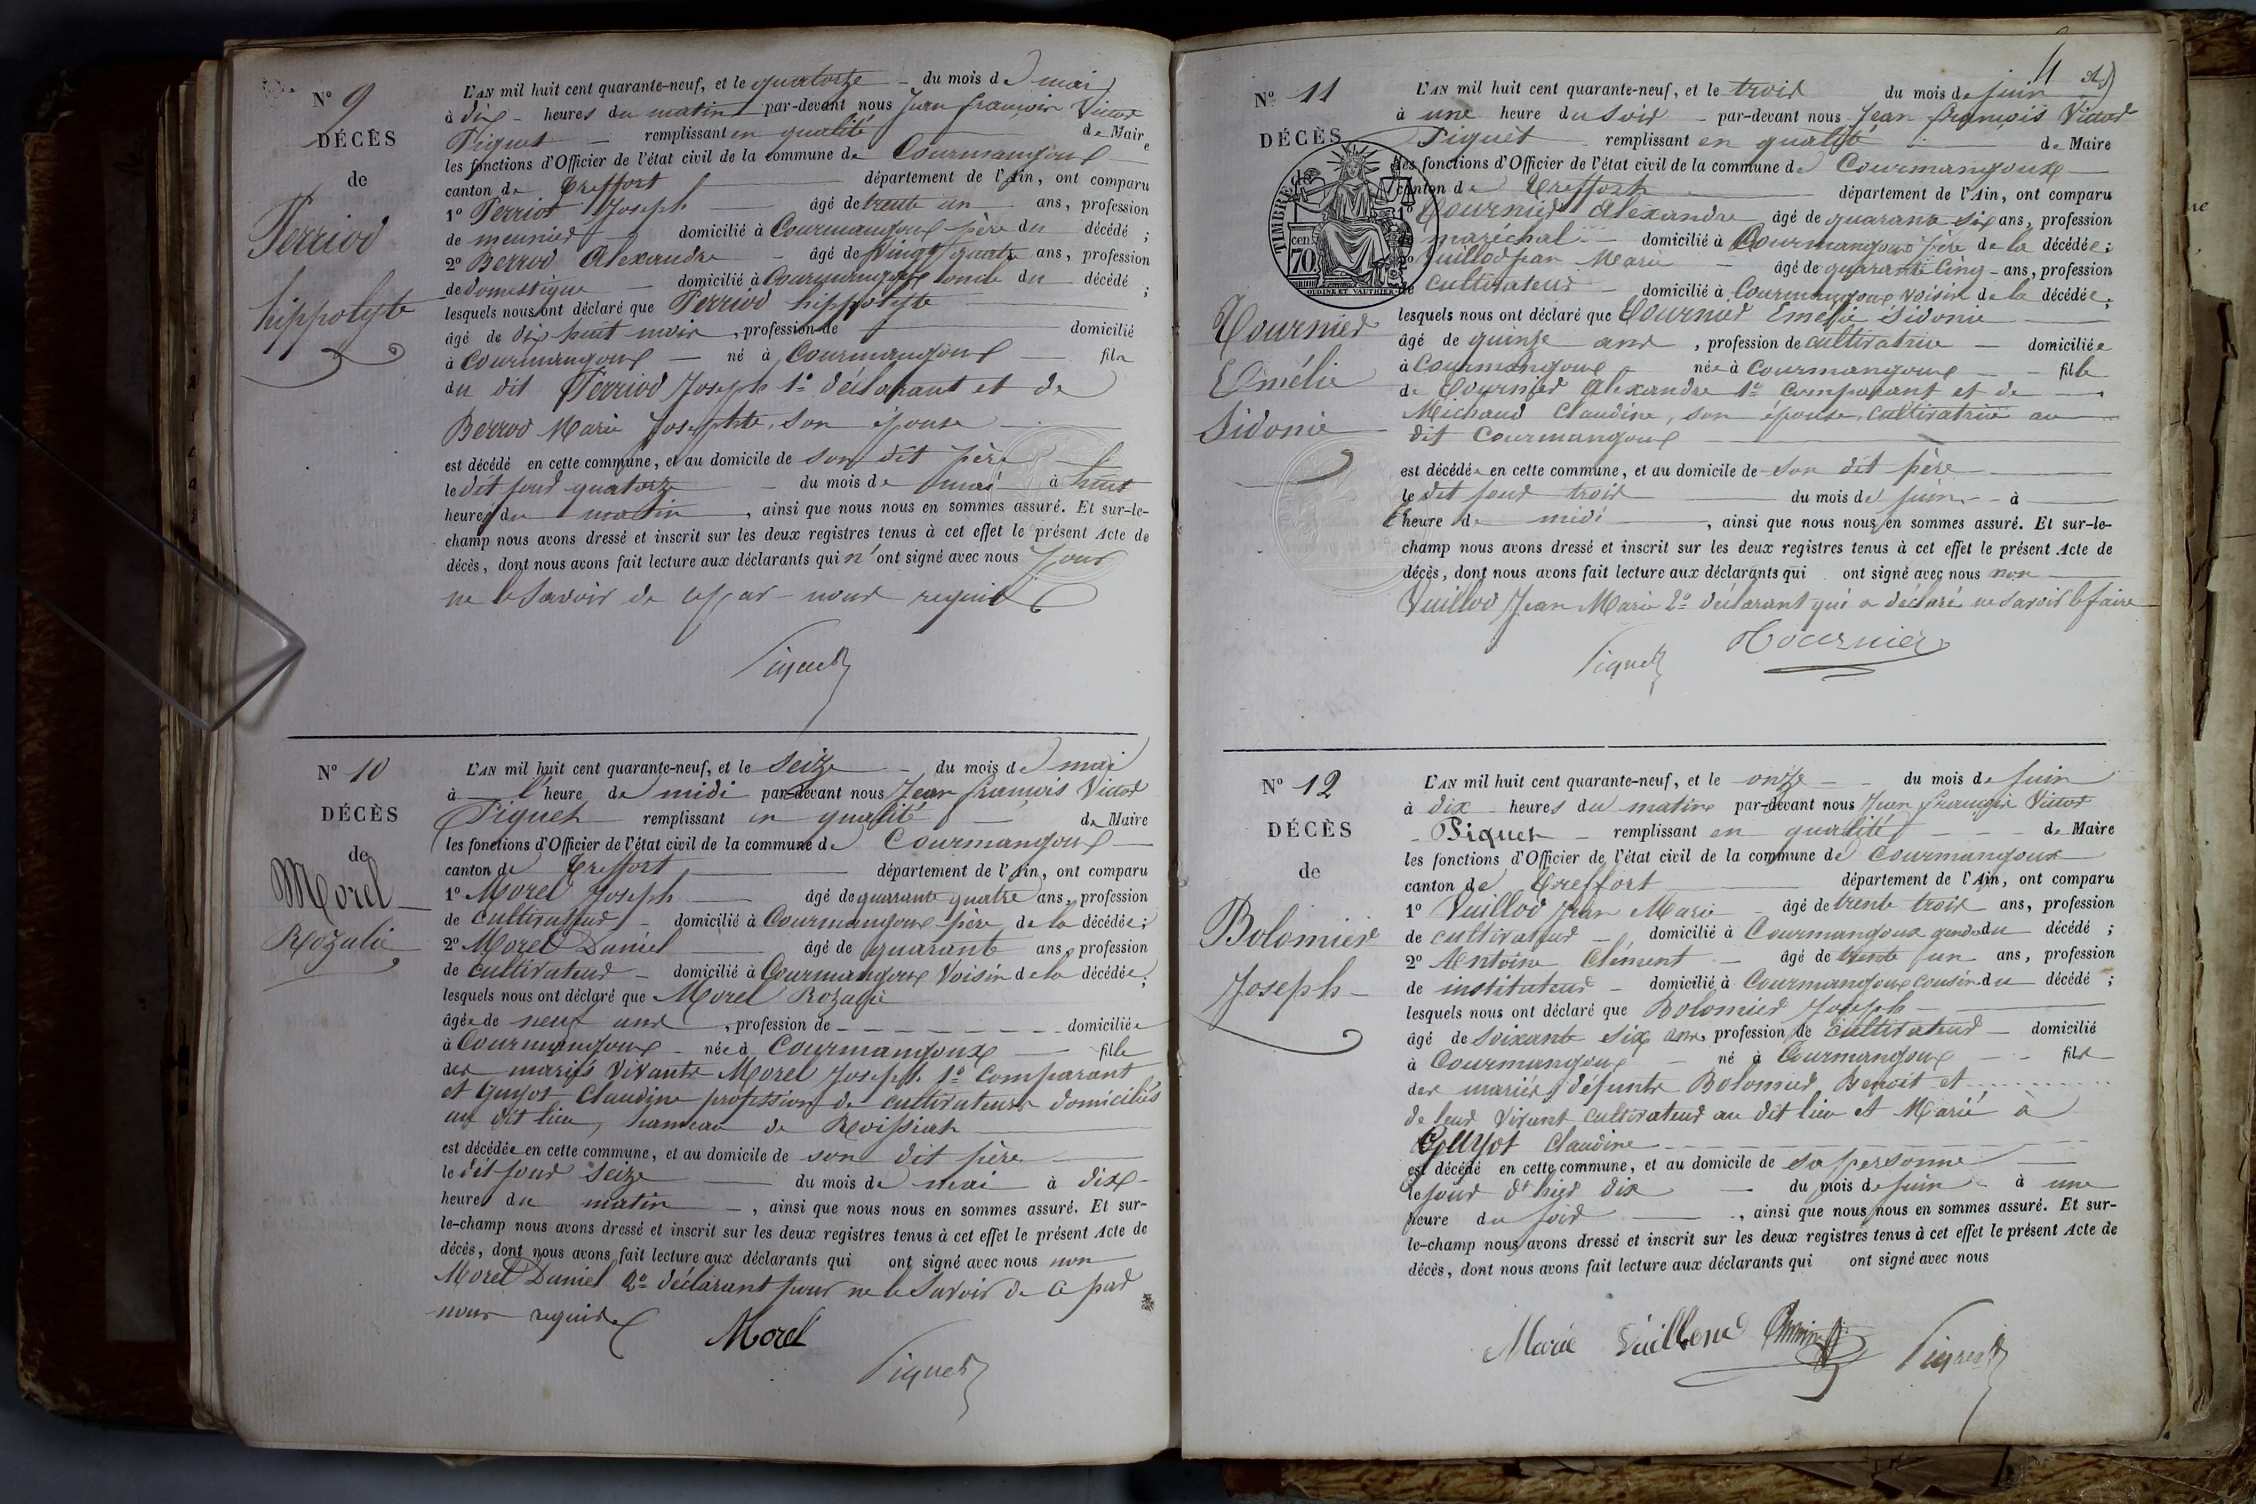 Nº 9
DÉCÈS
de
Perriod
hippolyte
L'AN mil huit cent quarante-neuf, et le quatorze du mois de mai
à dix heures du matin par-devant nous Jean françois Victor
Piquet remplissant en qualité de Maire
les fonctions d'Officier de l'état civil de la commune de Courmangoux
canton de Treffort département de l'Ain, ont comparu
1º Perriod Joseph âgé de trente un ans, profession
de meunier domicilié à Courmangoux père du décédé ;
2º Berrod Alexandre âgé de Vingt quatre ans, profession
de domestique domicilié à Courmangoux oncle du décédé ;
lesquels nous ont déclaré que Perriod hippolyte
âgé de dix huit mois, profession de domicilié
à Courmangoux né à Courmangoux fils
du dit Perriod Joseph 1º déclarant et de
Berrod Marie Josephte, son épouse
est décédé en cette commune, et au domicile de son dit père
le dit jour quatorze du mois de mai à huit
heures du matin, ainsi que nous nous en sommes assuré. Et sur-le-
champ nous avons dressé et inscrit sur les deux registres tenus à cet effet le présent Acte de
décès, dont nous avons fait lecture aux déclarants qui n'ont signé avec nous pour
ne le Savoir de ce par nous requis
Piquet
Nº 10
DÉCÈS
de
Morel
Rozalie
L'AN mil huit cent quarante-neuf, et le Seize du mois de mai
à l'heure de midi par-devant nous Jean françois Victor
Piquet remplissant en qualité de Maire
les fonctions d'Officier de l'état civil de la commune de Courmangoux
canton de Treffort département de l'Ain, ont comparu
1º Morel Joseph âgé de quarante quatre ans, profession
de cultivateur domicilié à Courmangoux père de la décédée ;
2º Morel Daniel âgé de quarante ans, profession
de cultivateur domicilié à Courmangoux Voisin de la décédée ;
lesquels nous ont déclaré que Morel Rozalie
âgée de neuf ans, profession de domiciliée
à Courmangoux née à Courmangoux fille
des mariés vivants Morel Joseph 1º Comparant
et Guyot Claudine profession de cultivateurs domiciliés
au dit lieu, hameau de Roissiat
est décédée en cette commune, et au domicile de son dit père
le dit jour seize du mois de mai à dix
heures du matin, ainsi que nous nous en sommes assuré. Et sur-
le-champ nous avons dressé et inscrit sur les deux registres tenus à cet effet le présent Acte de
décès, dont nous avons fait lecture aux déclarants qui ont signé avec nous non
Morel Daniel 2º déclarant pour ne le Savoir de ce par
nous requis
Morel
Piquet
Nº 11
DÉCÈS
TIMBRE
cen.
70
OUDINÉ ET VAUTHIER
Tournier
Emélie
Sidonie
L'AN mil huit cent quarante-neuf, et le trois du mois de juin
à une heure du Soir par-devant nous Jean françois Victor
Piquet remplissant en qualité de Maire
les fonctions d'Officier de l'état civil de la commune de Courmangoux
canton de Treffort département de l'Ain, ont comparu
1º Tournier Alexandre âgé de quarante six ans, profession
de maréchal domicilié à Courmangoux père de la décédée ;
2º Vuillod Jean Marie âgé de quarante Cinq ans, profession
de cultivateur domicilié à Courmangoux voisin de la décédée ;
lesquels nous ont déclaré que Tournier Emélie Sidonie
âgé de quinze ans, profession de cultivatrice domiciliée
à Courmangoux née à Courmangoux fille
de Tournier Alexandre 1º Comparant et de
Michaud Claudine, son épouse, cultivatrice au
dit Courmangoux
est décédée en cette commune, et au domicile de son dit père
le dit jour trois du mois de juin à
l'heure de midi, ainsi que nous nous en sommes assuré. Et sur-le-
champ nous avons dressé et inscrit sur les deux registres tenus à cet effet le présent Acte de
décès, dont nous avons fait lecture aux déclarants qui ont signé avec nous non
Vuillod Jean Marie 2º déclarant qui a déclaré ne savoir le faire
Piquet
Tournier
Nº 12
DÉCÈS
de
Bolomier
Joseph
L'AN mil huit cent quarante-neuf, et le onze du mois de juin
à dix heures du matin par-devant nous Jean françois Victor
Piquet remplissant en qualité de Maire
les fonctions d'Officier de l'état civil de la commune de Courmangoux
canton de Treffort département de l'Ain, ont comparu
1º Vuillod Jean Marie âgé de trente trois ans, profession
de cultivateur domicilié à Courmangoux gendre du décédé ;
2º Antoine Clément âgé de trente un ans, profession
de instituteur domicilié à Courmangoux cousin du décédé ;
lesquels nous ont déclaré que Bolomier Joseph
âgé de soixante six ans, profession de cultivateur domicilié
à Courmangoux né à Courmangoux fils
des mariés défunts Bolomier Benoit et
de leur vivant cultivateur au dit lieu et Marié à
Guyot Claudine
est décédé en cette commune, et au domicile de sa personne
le jour d'hier dix du mois de juin à une
heure du soir, ainsi que nous nous en sommes assuré. Et sur-
le-champ nous avons dressé et inscrit sur les deux registres tenus à cet effet le présent Acte de
décès, dont nous avons fait lecture aux déclarants qui ont signé avec nous
Marie Vuillod Antoine Piquet